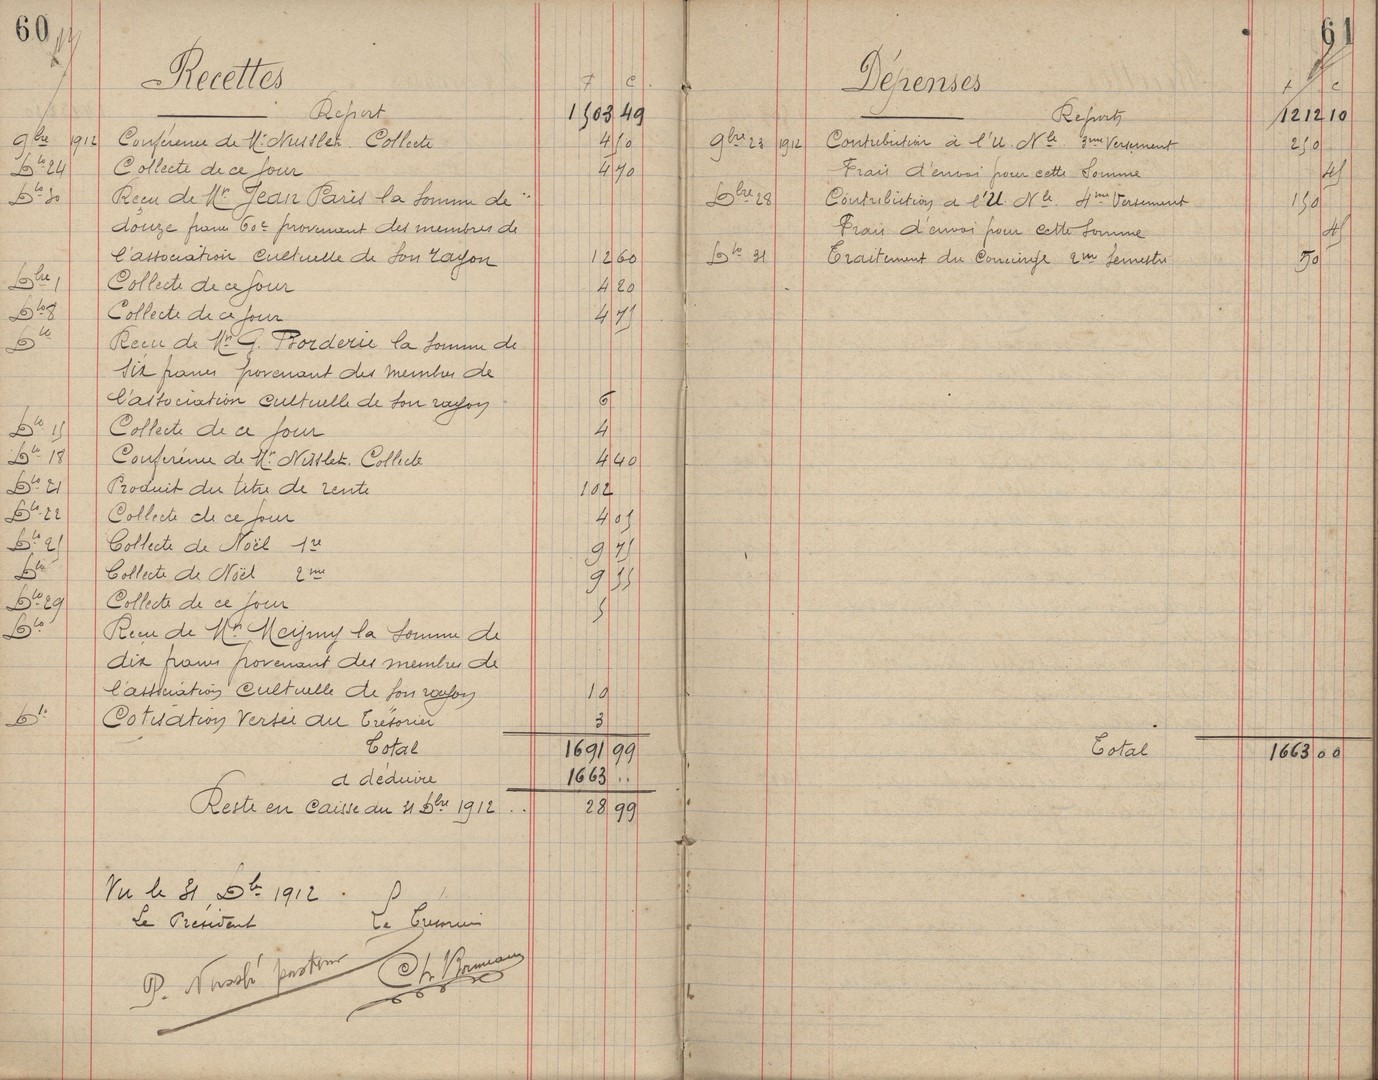 60
Recettes
F C
Report 1503 49
9bre 1912 Conférence de Mr Nusslé. Collecte 4 50
Dto 24 Collecte de ce jour 4 70
Dto 30 Reçu de Mr Jean Paris la somme de
douze francs 60c provenant des membres de
l'association cultuelle de son rayon 12 60
Dbre 1 Collecte de ce jour 4 20
Dto 8 Collecte de ce jour 4 75
Dto Reçu de Mr G. Borderie la somme de
six francs provenant des membres de
l'association cultuelle de son rayon 6
Dto 15 Collecte de ce jour 4
Dto 18 Conférence de Mr Nusslé. Collecte 4 40
Dto 21 Produit du titre de rente 102
Dto 22 Collecte de ce jour 4 05
Dto 25 Collecte de Noël 1re 9 75
Dto Collecte de Noël 2me 9 55
Dto 29 Collecte de ce jour 5
Dto Reçu de Mr la somme de
dix francs provenant des membres de
l'association cultuelle de son rayon 10
Dto Cotisation versée au Trésorier 3
Total 1691 99
a déduire 1663 ..
Reste en caisse au 31 Dbre 1912 .. 28 99
Vu le 31 Dbre 1912.
Le Président Le Trésorier
P. Nusslé pasteur
61
Dépenses
F C
Report 1212 10
9bre 23 1912 Contribution à l'U. Nle 3me Versement 250
Frais d'envoi pour cette somme 45
Dbre 28 Contribution a l'U. Nle 4me Versement 150
Frais d'envoi pour cette somme 45
Dto 31 Traitement du Concierge 2me semestre 50
Total 1663 00